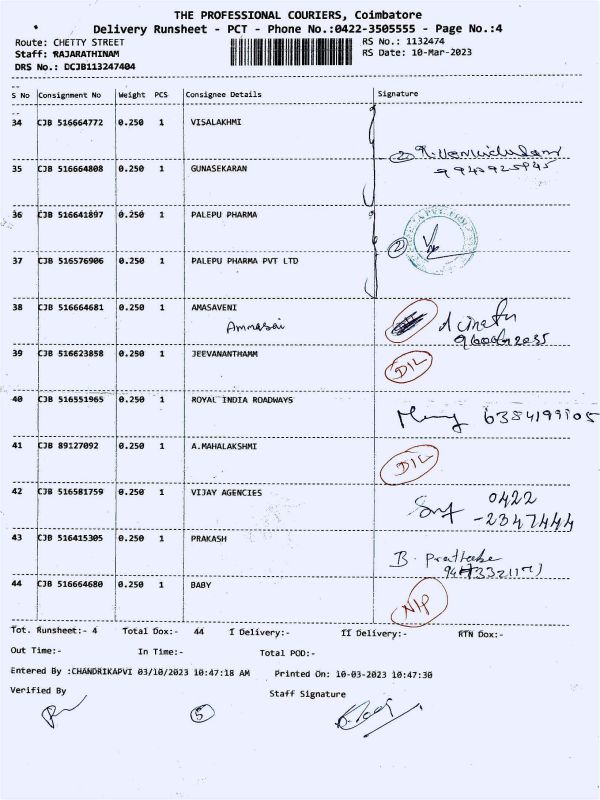 THE PROFESSIONAL COURIERS, Coimbatore
Delivery Runsheet - PCT - Phone No.:0422-3505555 - Page No.:4
Route: CHETTY STREET
RS No.: 1132474
Staff: RAJARATHINAM
RS Date: 10-Mar-2023
DRS No.: DCJB113247404
S No Consignment No Weight PCS Consignee Details Signature
34 CJB 516664772 0.250 1 VISALAKHMI
2
35 CJB 516664808 0.250 1 GUNASEKARAN
9943925945
36 CJB 516641897 0.250 1 PALEPU PHARMA
2
37 CJB 516576906 0.250 1 PALEPU PHARMA PVT LTD
38 CJB 516664681 0.250 1 AMASAVENI
Ammasai
39 CJB 516623858 0.250 1 JEEVANANTHAMM
DIL
40 CJB 516551965 0.250 1 ROYAL INDIA ROADWAYS
41 CJB 89127092 0.250 1 A.MAHALAKSHMI
DIL
42 CJB 516581759 0.250 1 VIJAY AGENCIES
0422
-2347444
43 CJB 516415305 0.250 1 PRAKASH
B.
44 CJB 516664680 0.250 1 BABY
N/P
Tot. Runsheet:- 4 Total Dox:- 44 I Delivery:- II Delivery:- RTN Dox:-
Out Time:- In Time:- Total POD:-
Entered By :CHANDRIKAPVI 03/10/2023 10:47:18 AM Printed On: 10-03-2023 10:47:30
Verified By Staff Signature
5